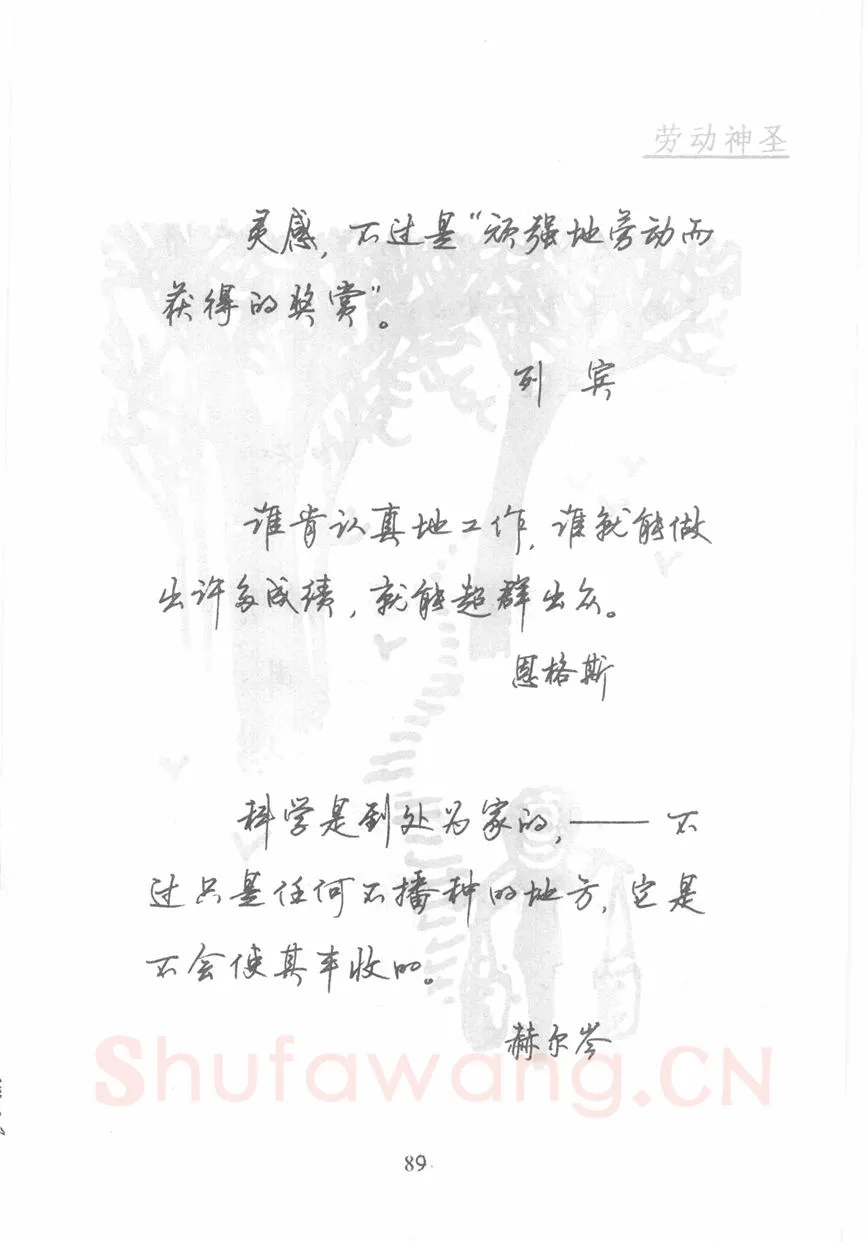 劳动神圣
灵感，不过是“顽强地劳动而
获得的奖赏”。
列宾
谁肯认真地工作，谁就能做
出许多成绩，就能超群出众。
恩格斯
科学是到处为家的，——不
过只是任何不播种的地方，它是
不会使其丰收的。
赫尔岑
Shufawang.CN
89